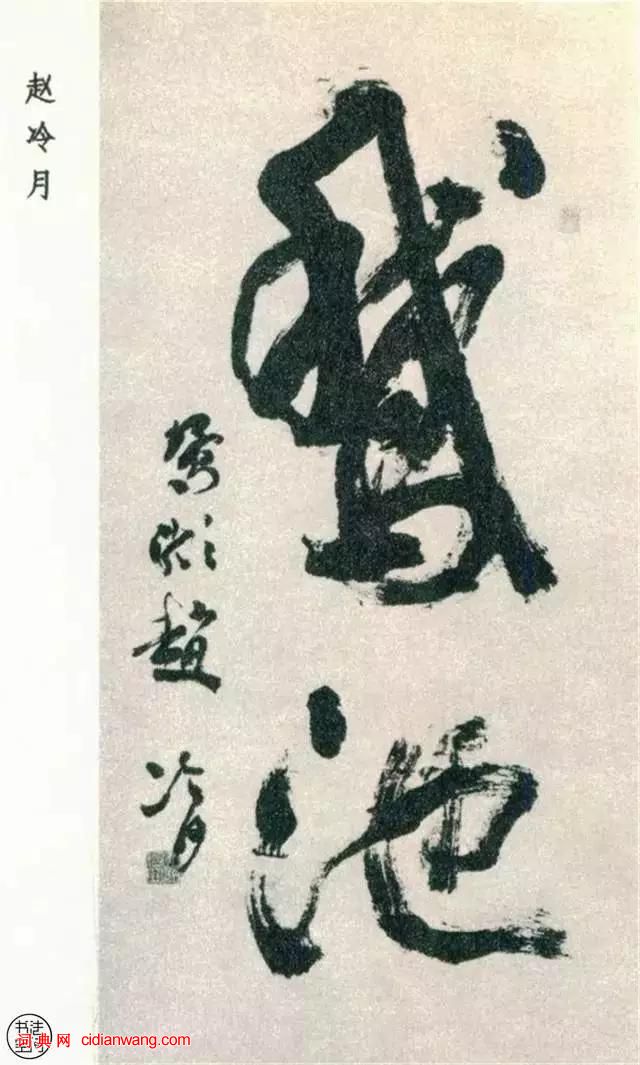 赵冷月
鹅池
赵冷月
词典网 cidianwang.com